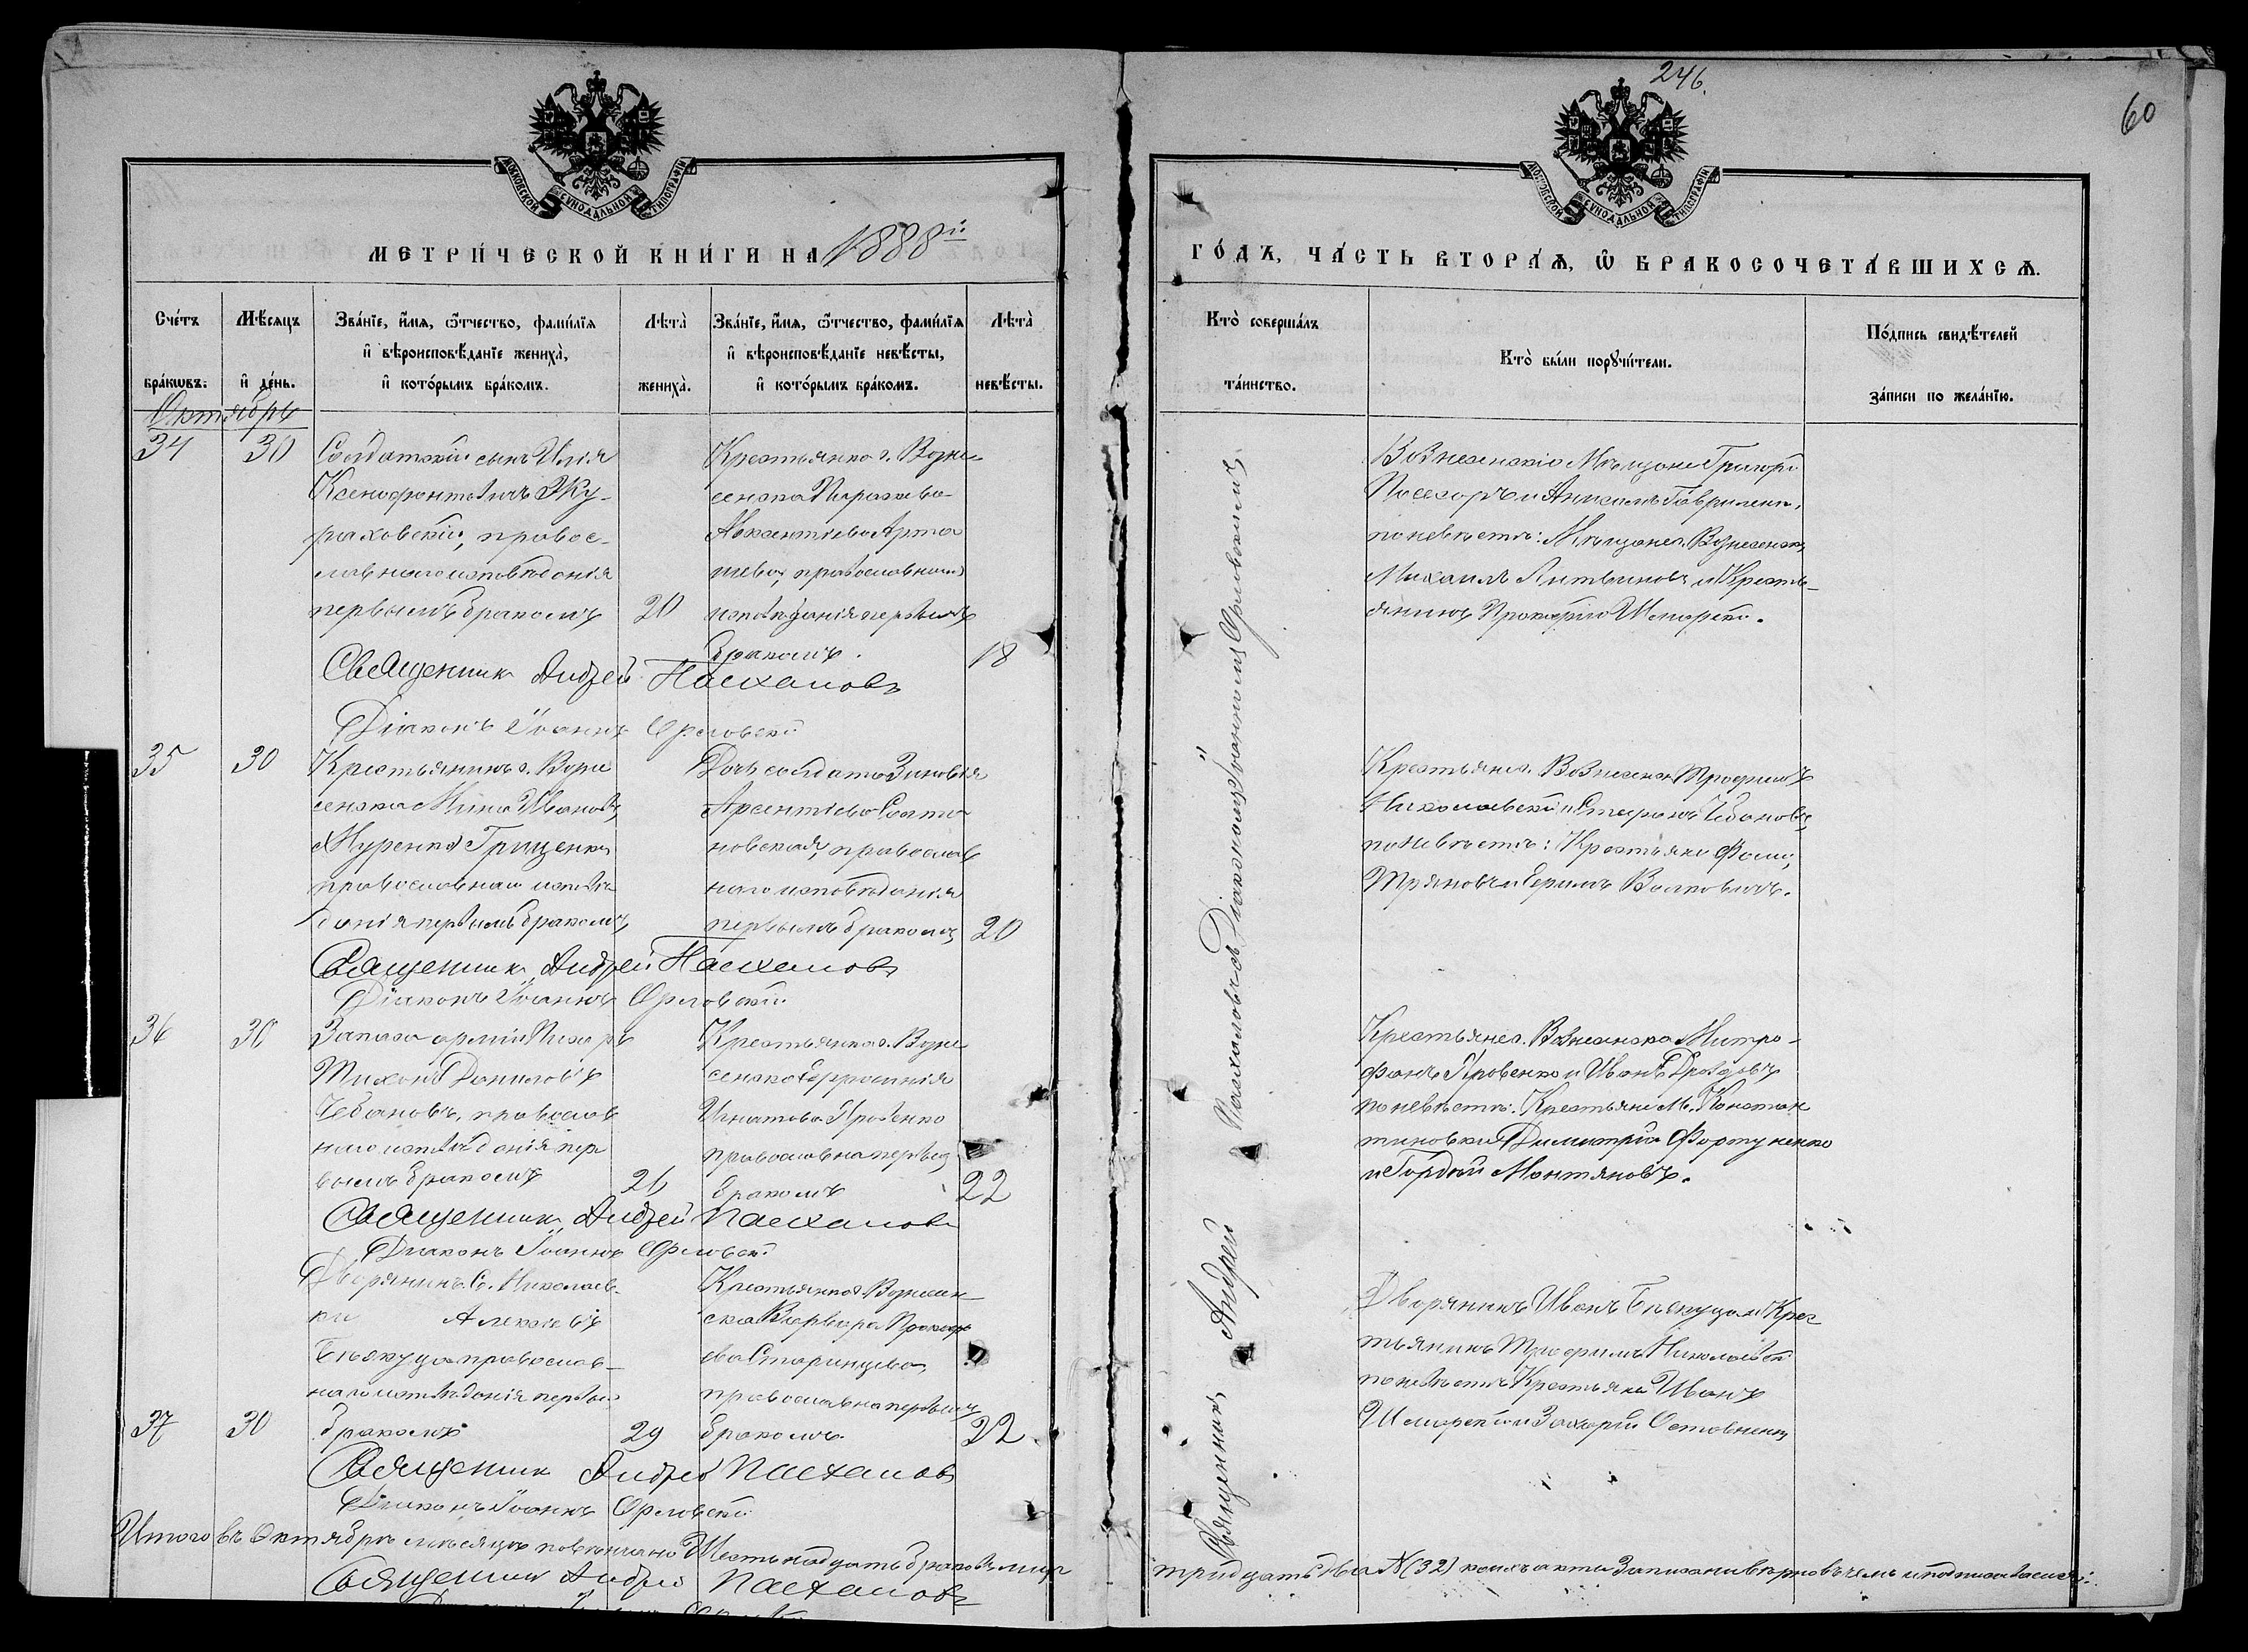 246.
60
МОСКОВСКОЙ СѴНОДАЛЬНОЙ ТИПОГРАФІИ
МОСКОВСКОЙ СѴНОДАЛЬНОЙ ТИПОГРАФІИ
МЕТРИ́ЧЕСКОЙ КНИ́ГИ НА 1888й
ГО́ДЪ, ЧА́СТЬ ВТОРА́Ѧ, Ѡ БРАКОСОЧЕТА́ВШИХСѦ.
Сче́тъ бра́кѡвъ.
Мѣ́сяцъ и҆ де́нь.
Зва́нїе, и҆́мѧ, ѻ҆́тчество, фами́лїѧ
и҆ вѣроисповѣ́данїе жениха̀,
и҆ кото́рымъ бра́комъ.
Лѣта̀ жениха̀.
Зва́нїе, и҆́мѧ, ѻ҆́тчество, фами́лїѧ
и҆ вѣроисповѣ́данїе невѣ́сты,
и҆ кото́рымъ бра́комъ.
Лѣта̀ невѣ́сты.
Кто̀ соверша́лъ
та́инство.
Кто̀ бы́ли порꙋчи́тели.
По́дпись свидѣ́телей
за́писи по жела́нїю.
Октябрь
34
30
Солдатскій сынъ Илія
Ксенофонтовичъ Жу-
раховскій, правос-
лавнаго исповѣданія
первымъ бракомъ
20
Крестьянка г. Возне-
сенска Параскева
Авксентіева Арта
шева, православнаго
исповѣданія первымъ
бракомъ.
18
Вознесенскіе Мѣщане Григорій
и
по невѣстѣ: Мѣщане г. Вознесенска
Михаилъ Литвиновъ и Кресть-
янинъ Прокофій
Священникъ Андрей Пасхаловъ
Діаконъ Іоаннъ Орловскій
35
30
Крестьянинъ г. Возне
сенска Мина Ивановъ
Гриценко
православнаго исповѣ
данія первымъ бракомъ
Дочь солдата Зиновія
Арсентіева
новская, православ
наго исповѣданія
первымъ бракомъ
20
Крестьяне г. Вознесенска Трофимъ
Николаевскій и Стефанъ Чебановъ,
по невѣстѣ: Крестьяне Фома
и Ефимъ
Священникъ Андрей Пасхаловъ
Діаконъ Іоаннъ Орловскій
36
30
Запаса арміи Писарь
Тихонъ Даниловъ
Чебановъ, православ
наго исповѣданія пер
вымъ бракомъ
26
Крестьянка г. Возне
сенска Евфросинія
Игнатова
православна первымъ
бракомъ
22
Крестьяне г. Вознесенска Митро-
фанъ и Иванъ Дроздовъ
по невѣстѣ: Крестьяне М. Констан
тиновки Димитрій Фортуненко
и Гордій
Священникъ Андрей Пасхаловъ
Діаконъ Іоаннъ Орловскій
Дворянинъ С. Николаев-
ки Алексіевъ
православ-
наго исповѣданія первымъ
37
30
бракомъ
29
Крестьянка г. Вознесен-
ска Варвара
православна первымъ
бракомъ.
22
Дворянинъ Иванъ и Крес
тьянинъ Трофимъ Николаевскій
по невѣстѣ Крестьяне Иванъ
и Захарій
Священникъ Андрей Пасхаловъ
Діаконъ Іоаннъ Орловскій
Священникъ Андрей Пасхаловъ съ Діакономъ Іоанномъ Орловскимъ
Итого въ Октябрѣ мѣсяцѣ повѣнчано Шестнадцать браковъ
тридцать два № (32) акты записаны вѣрно въ чемъ и подписались:
Священникъ Андрей Пасхаловъ